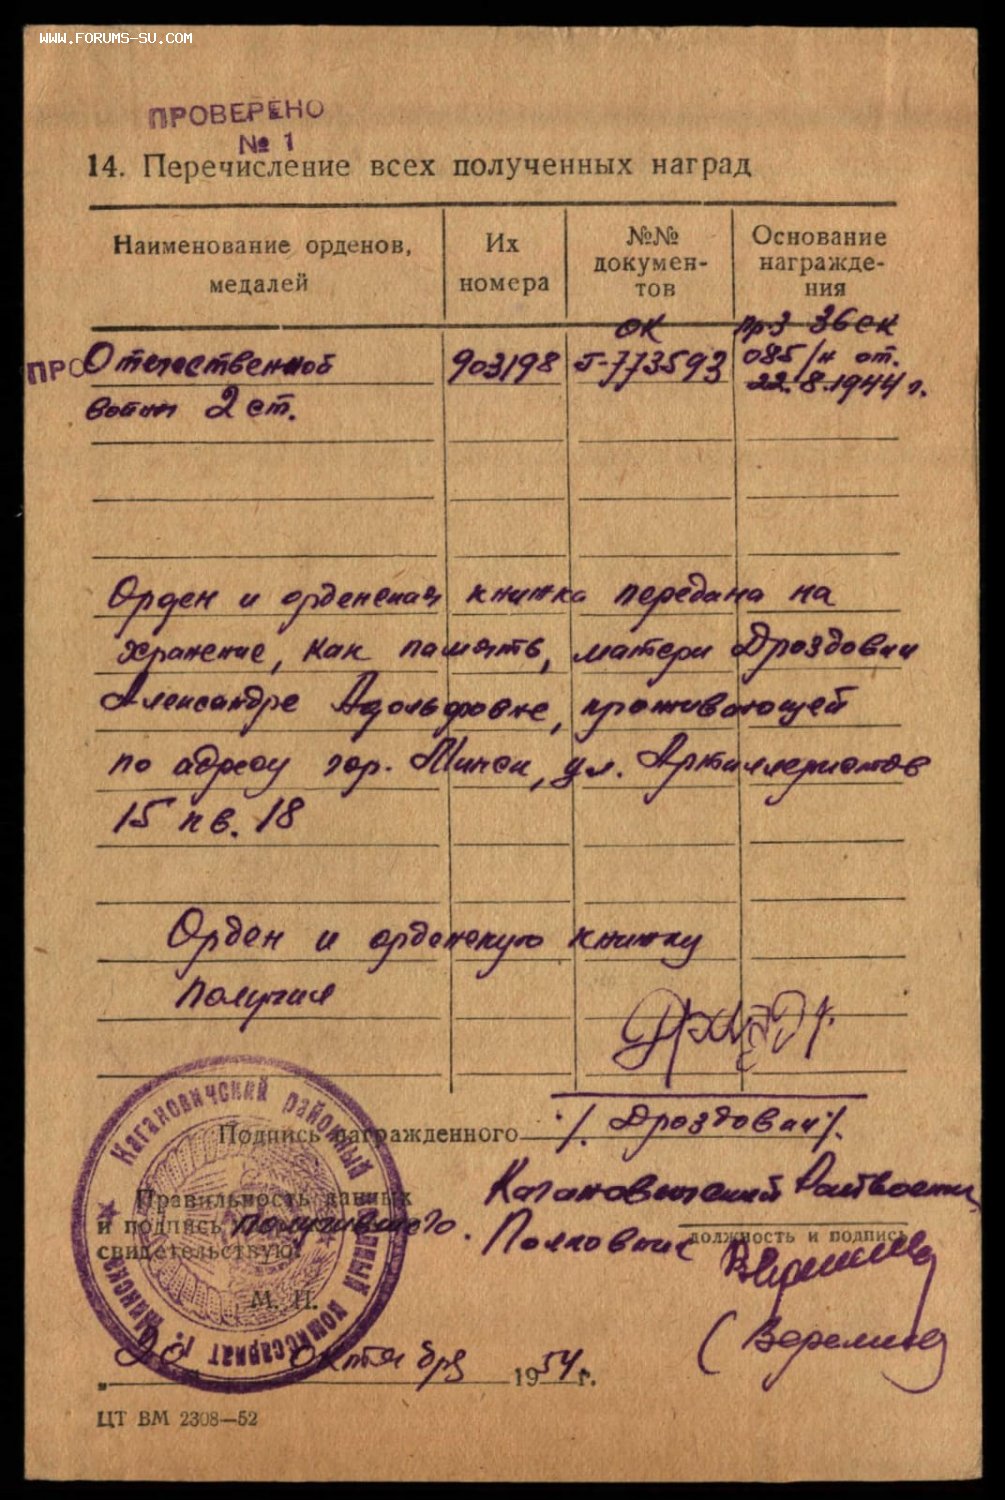 WWW.FORUMS-SU.COM
ПРОВЕРЕНО
№ 1
14. Перечисление всех полученных наград
Наименование орденов, медалей
Их номера
№№ докумен-тов
Основание награжде-ния
ПРО
Отечественной
войны 2 ст.
903198
ОК
Г-773593
пр-з 36 ск
085/н от.
22.8.1944 г.
Орден и орденская книжка передана на
хранение, как память, матери Дроздович
Александре Адольфовне, проживающей
по адресу гор. Минск, ул. Артиллеристов
15 кв. 18
Орден и орденскую книжку
получил
Подпись награжденного
/. Дроздович/.
Правильность данных
и подпись получившего.
свидетельствую:
Кагановичский Райвоенком
Полковник
должность и подпись
М. П.
Кагановичский районный военный комиссариат г. Минска
20 октября 1954 г.
ЦТ ВМ 2308—52